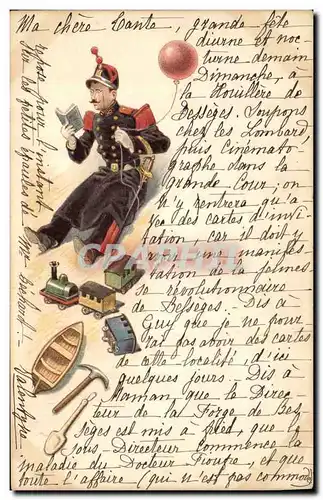 Ma chère Tante, grande fête
diurne et noc
turne demain
Dimanche, à
la Houillère de
Bessèges. Soupons
chez les Lombard,
puis Cinémato
graphe dans la
Grande Cour; on
n'y rentrera qu'a
vec des cartes d'invi
tation, car il doit y
avoir une manifes
tation de la jeunes
se révolutionnaire
de Bessèges. Dis à
Guy que je ne pour
rai pas avoir des cartes
de cette localité, d'ici
quelques jours. Dis à
Maman que le Direc
teur de la Forge de Bes
sèges est mis à pied, que le
Sous-Directeur commence la
maladie du Docteur et que
toute l'affaire (qui n'est pas commode)
repose pour l'instant
sur les petites épaules de Mr